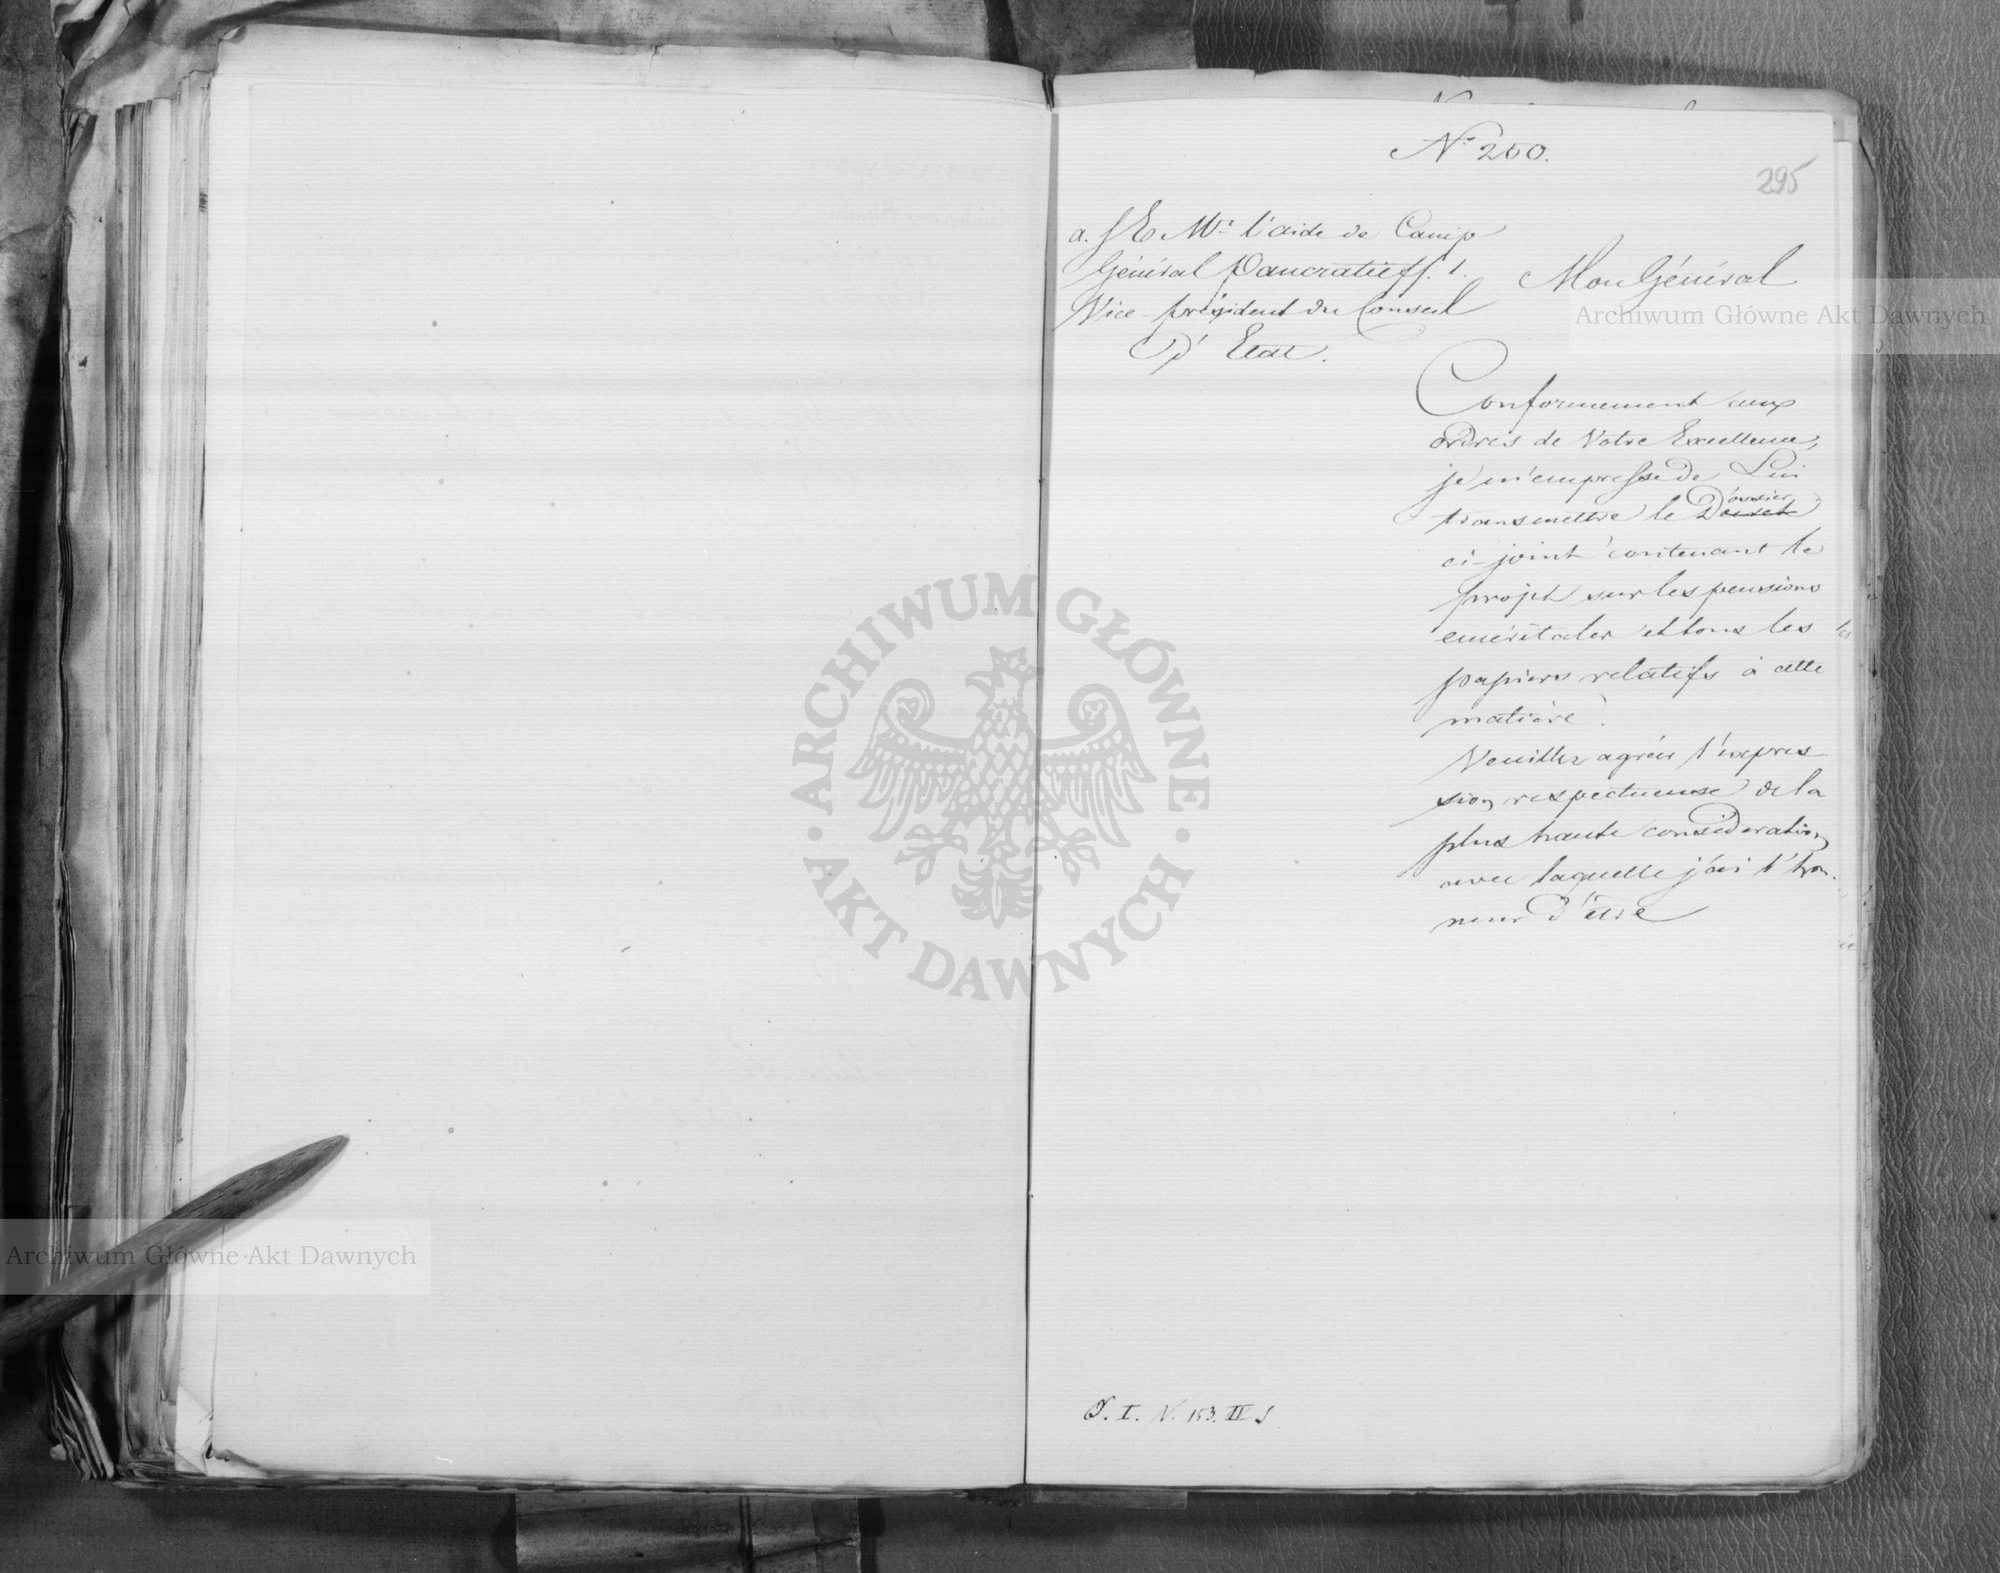 Nº 250.
295
a. S. E. Mr. l'aide de Camp
Général Pancratieff. 1.
Vice-président du Conseil
D' Etat.
Mon Général
Conformement aux
ordres de Votre Excellence,
je m'empresse de Lui
transmettre le Dossier
ci-joint contenant le
projet sur les pensions
emeritales et tous les
papiers relatifs à cette
matière.
Veuillez agréer l'expres-
sion respectueuse de la
plus haute consideration
avec laquelle j'ai l'hon-
neur d'être
S. I. N. 153. II
Archiwum Główne Akt Dawnych
Archiwum Główne Akt Dawnych
ARCHIWUM GŁÓWNE AKT DAWNYCH